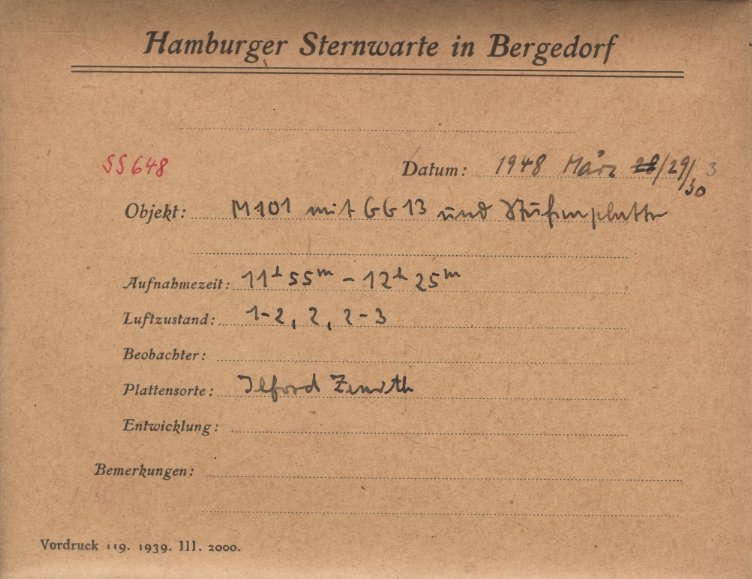 Hamburger Sternwarte in Bergedorf
SS648
Datum: 1948 März 28/29/30 3
Objekt: M101 mit GG13 und Stufenplatte
Aufnahmezeit: 11h 55m - 12h 25m
Luftzustand: 1-2, 2, 2-3
Beobachter:
Plattensorte: Ilford Zenith
Entwicklung:
Bemerkungen:
Vordruck 119. 1939. III. 2000.